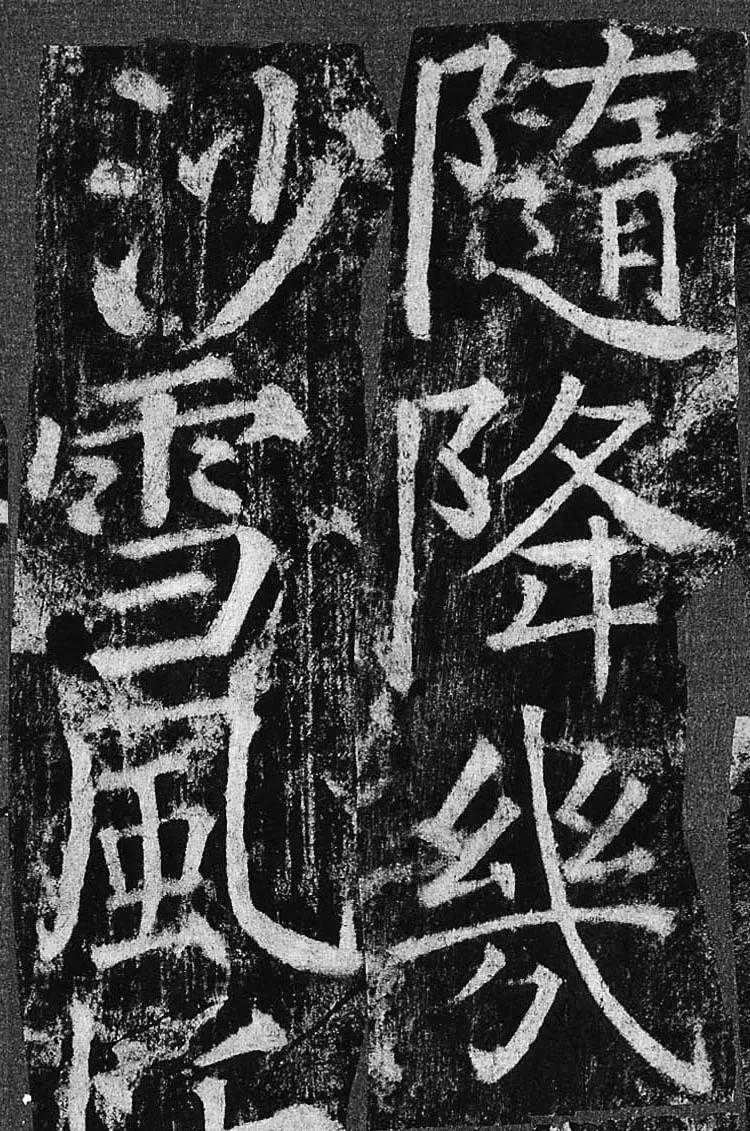 隨降幾
沙雪風